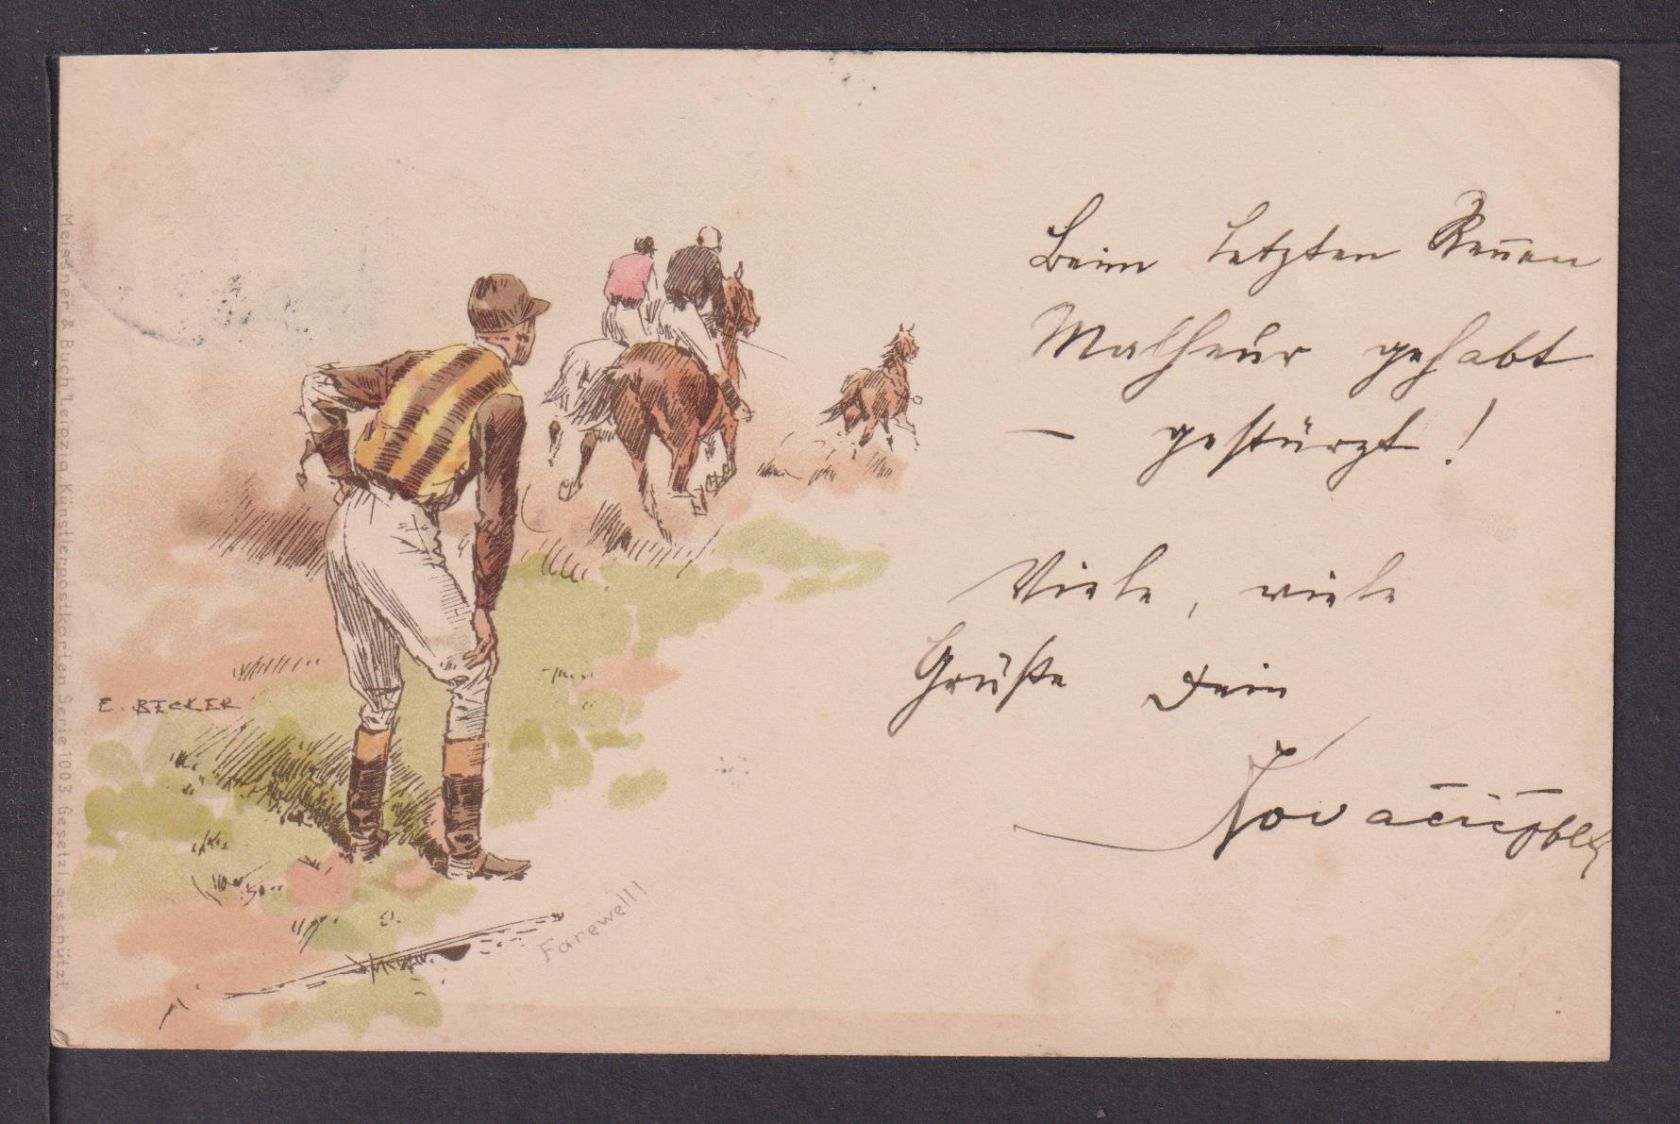 Beim letzten Rennen
Malheur gehabt
– gestürzt!
Viele, viele
Grüße Dein
E. BECKER
Farewell!
Meissner & Buch Leipzig Künstlerpostkarten Serie 1003 Gesetzl. geschützt.